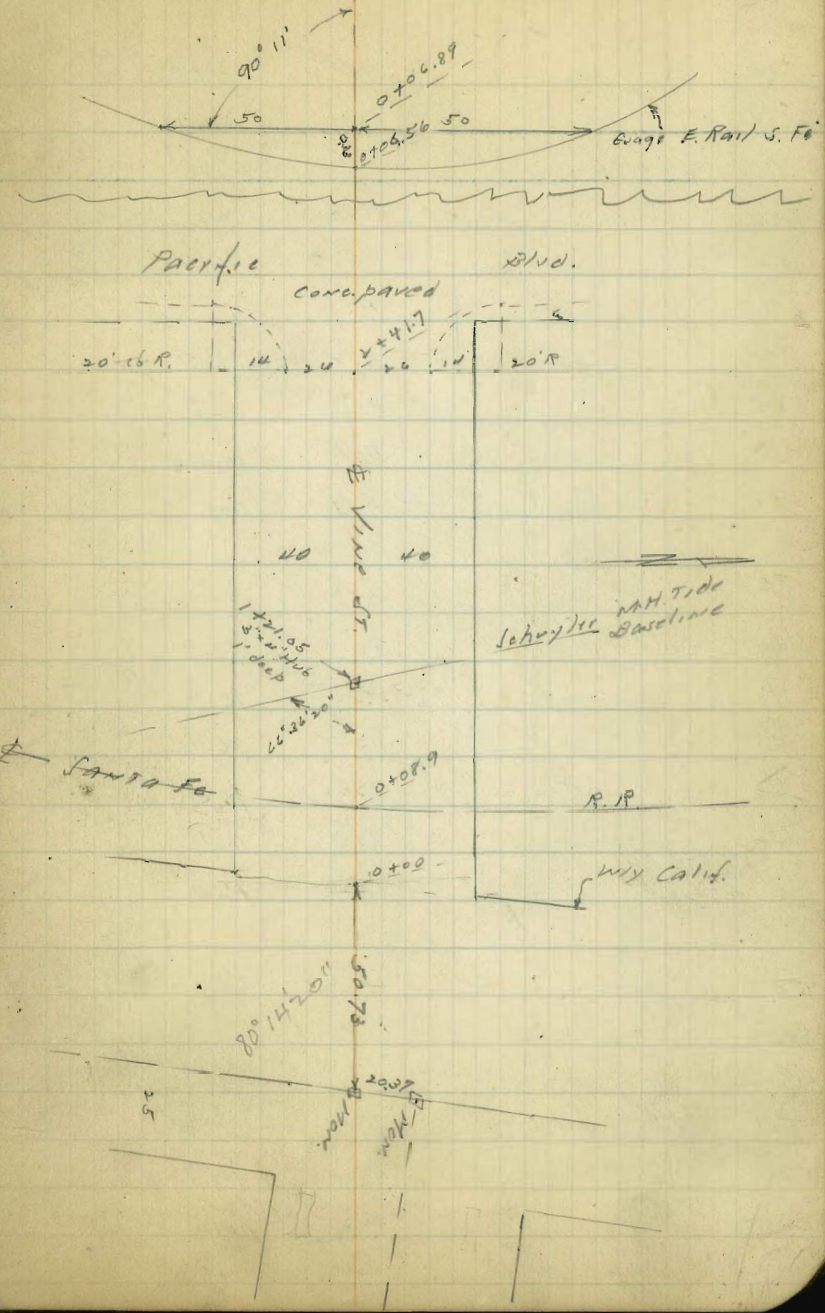 90° 11'
0+06.89
50
50
0+06.56
0.33
Guage E. Rail S. Fe
Pacific Blvd.
Conc. paved
2+41.7
20' cb R.
14
26
26
14
20' R
℄ Vine St.
40
40
Schuyler M.H. Tide
Baseline
1+21.05
3"x4" Hub
1' deep
66° 36' 20"
℄ Santa Fe
R.R.
0+08.9
0+00
W'ly Calif.
50.73
80° 14' 20"
20.37
Mon.
Mon.
25